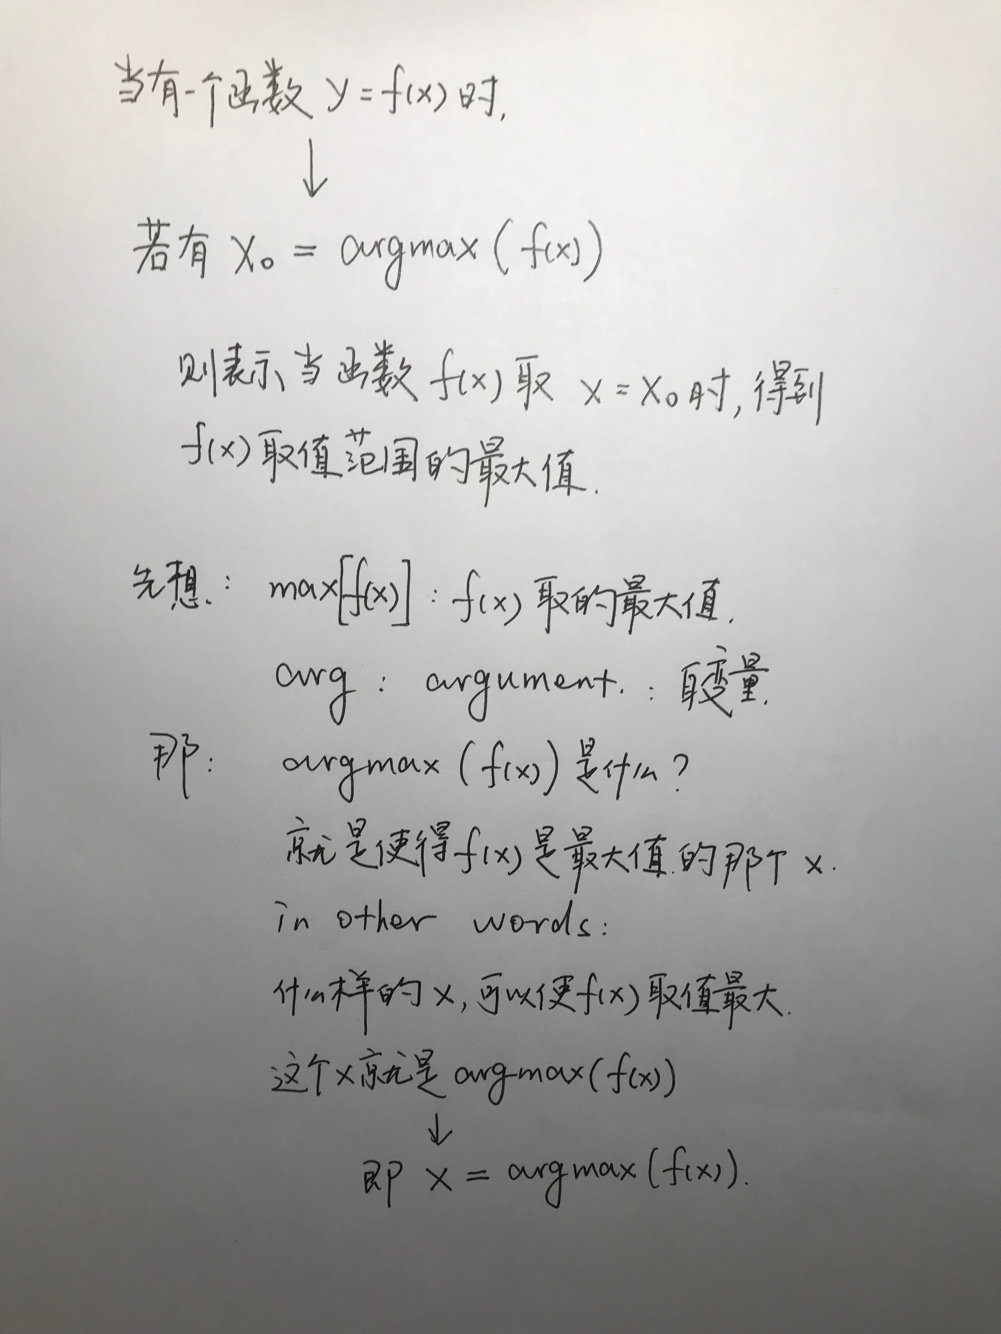 当有一个函数 y=f(x) 时,
↓
若有 x₀ = argmax (f(x))
则表示当函数 f(x) 取 x=x₀时,得到
f(x)取值范围的最大值.
先想: max[f(x)] : f(x) 取的最大值.
arg : argument. : 自变量.
那: argmax (f(x)) 是什么?
就是使得f(x)是最大值的那个 x.
in other words:
什么样的 x, 可以使f(x)取值最大.
这个x就是 argmax(f(x))
↓
即 x = argmax(f(x)).